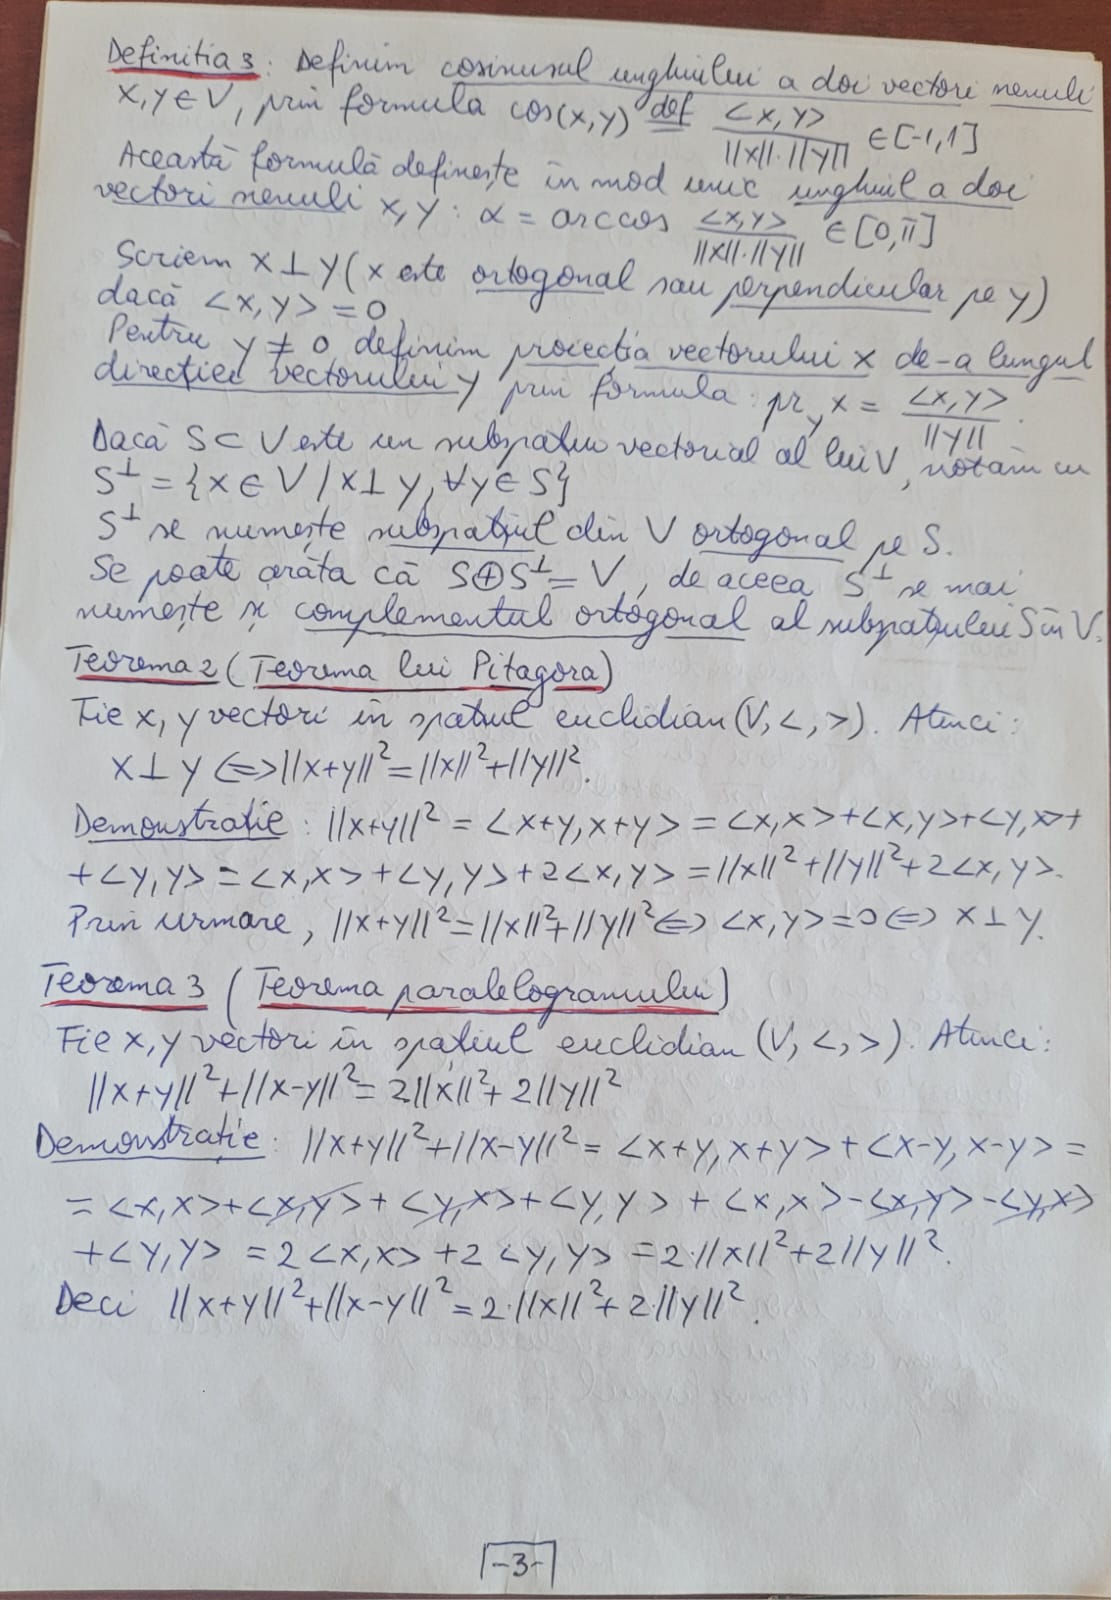 Definitia 3: Definim cosinusul unghiului a doi vectori nenuli
x,y∈V, prin formula cos(x,y) def= <x,y>/(||x||·||y||) ∈[-1,1]
Această formulă definește în mod unic unghiul a doi
vectori nenuli x,y: α = arccos <x,y>/(||x||·||y||) ∈[0,π]
Scriem x⊥y (x este ortogonal sau perpendicular pe y)
dacă <x,y> = 0
Pentru y ≠ 0 definim proiecția vectorului x de-a lungul
direcției vectorului y prin formula: pr_y x = <x,y>/||y||.
Dacă S⊂V este un subspațiu vectorial al lui V, notăm cu
S⊥ = {x∈V/x⊥y, ∀y∈S}
S⊥ se numește subspațiul din V ortogonal pe S.
Se poate arăta că S⊕S⊥=V, de aceea S⊥ se mai
numește și complementul ortogonal al subspațiului S în V.
Teorema 2 (Teorema lui Pitagora)
Fie x, y vectori în spațiul euclidian (V,<,>). Atunci:
x⊥y <=> ||x+y||²=||x||²+||y||².
Demonstratie: ||x+y||² = <x+y,x+y> = <x,x>+<x,y>+<y,x>+
+<y,y> = <x,x>+<y,y>+2<x,y> = ||x||²+||y||²+2<x,y>.
Prin urmare, ||x+y||²=||x||²+||y||² <=> <x,y>=0 <=> x⊥y.
Teorema 3 (Teorema paralelogramului)
Fie x,y vectori în spațiul euclidian (V,<,>). Atunci:
||x+y||²+||x-y||²= 2||x||²+2||y||²
Demonstrație: ||x+y||²+||x-y||²= <x+y,x+y>+<x-y,x-y> =
= <x,x>+<x,y>+<y,x>+<y,y>+<x,x>-<x,y>-<y,x>
+<y,y> = 2<x,x>+2<y,y> = 2·||x||²+2||y||².
Deci ||x+y||²+||x-y||²=2·||x||²+2·||y||².
-3-